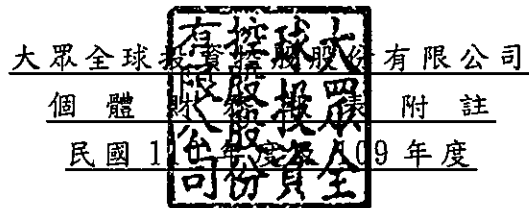 大眾全球投資控股股份有限公司
個體財 表附註
民國 11 年度及 109 年度
大眾全球投資控股股份有限公司